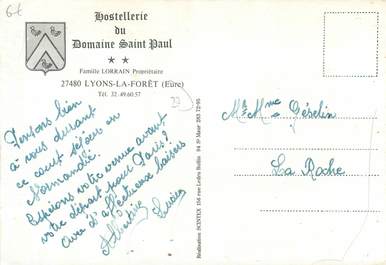 6t
Hostellerie
du
Domaine Saint Paul
★ ★
Famille LORRAIN Propriétaire
27480 LYONS-LA-FORÊT (Eure)
Tél. 32.49.60.57
Pensons bien
à vous durant
ce court séjour en
Normandie.
Espérons votre venue avant
votre départ pour Paris?
Avec d'affectueux baisers
Albertine Lucien
Réalisation SCINTEX 156 rue Ledru Rollin 94 St Maur 283 72-95
Mr Mme Géselin
La Roche